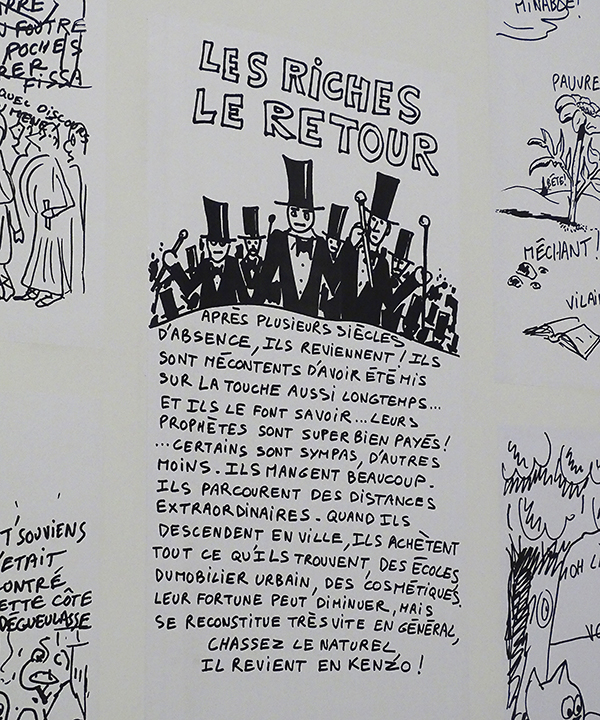 RRE/
FOUTRE
POCHES
RER
FISSA
QUEL DISCOURS
LES RICHES
LE RETOUR
APRÈS PLUSIEURS SIÈCLES
D'ABSENCE, ILS REVIENNENT! ILS
SONT MÉCONTENTS D'AVOIR ÉTÉ MIS
SUR LA TOUCHE AUSSI LONGTEMPS...
ET ILS LE FONT SAVOIR... LEURS
PROPHÈTES SONT SUPER BIEN PAYÉS!
...CERTAINS SONT SYMPAS, D'AUTRES
MOINS. ILS MANGENT BEAUCOUP.
ILS PARCOURENT DES DISTANCES
EXTRAORDINAIRES. QUAND ILS
DESCENDENT EN VILLE, ILS ACHÈTENT
TOUT CE QU'ILS TROUVENT, DES ÉCOLES,
DU MOBILIER URBAIN, DES COSMÉTIQUES.
LEUR FORTUNE PEUT DIMINUER, MAIS
SE RECONSTITUE TRÈS VITE EN GÉNÉRAL,
CHASSEZ LE NATUREL,
IL REVIENT EN KENZO!
T'SOUVIENS
'ETAIT
CONTRÉ
ETTE CÔTE
DEGUEULASSE
MINABLE!
PAUVRE
BÊTE!
MÉCHANT!
VILAI
OH L
VO